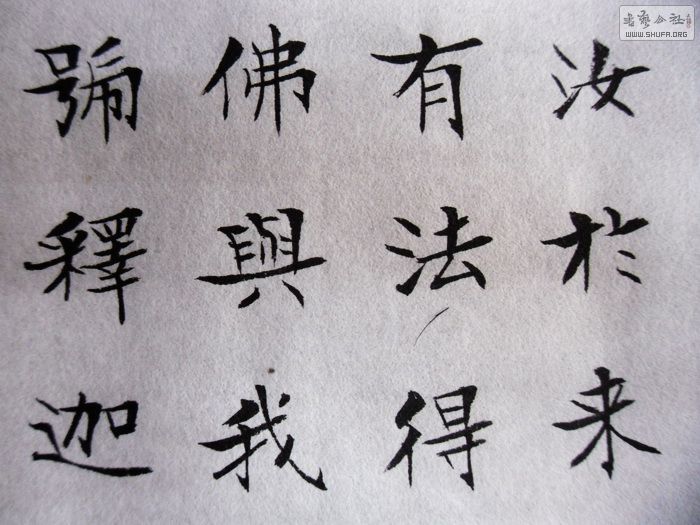 汝於来
有法得
佛與我
號釋迦
书艺公社
WWW.SHUFA.ORG